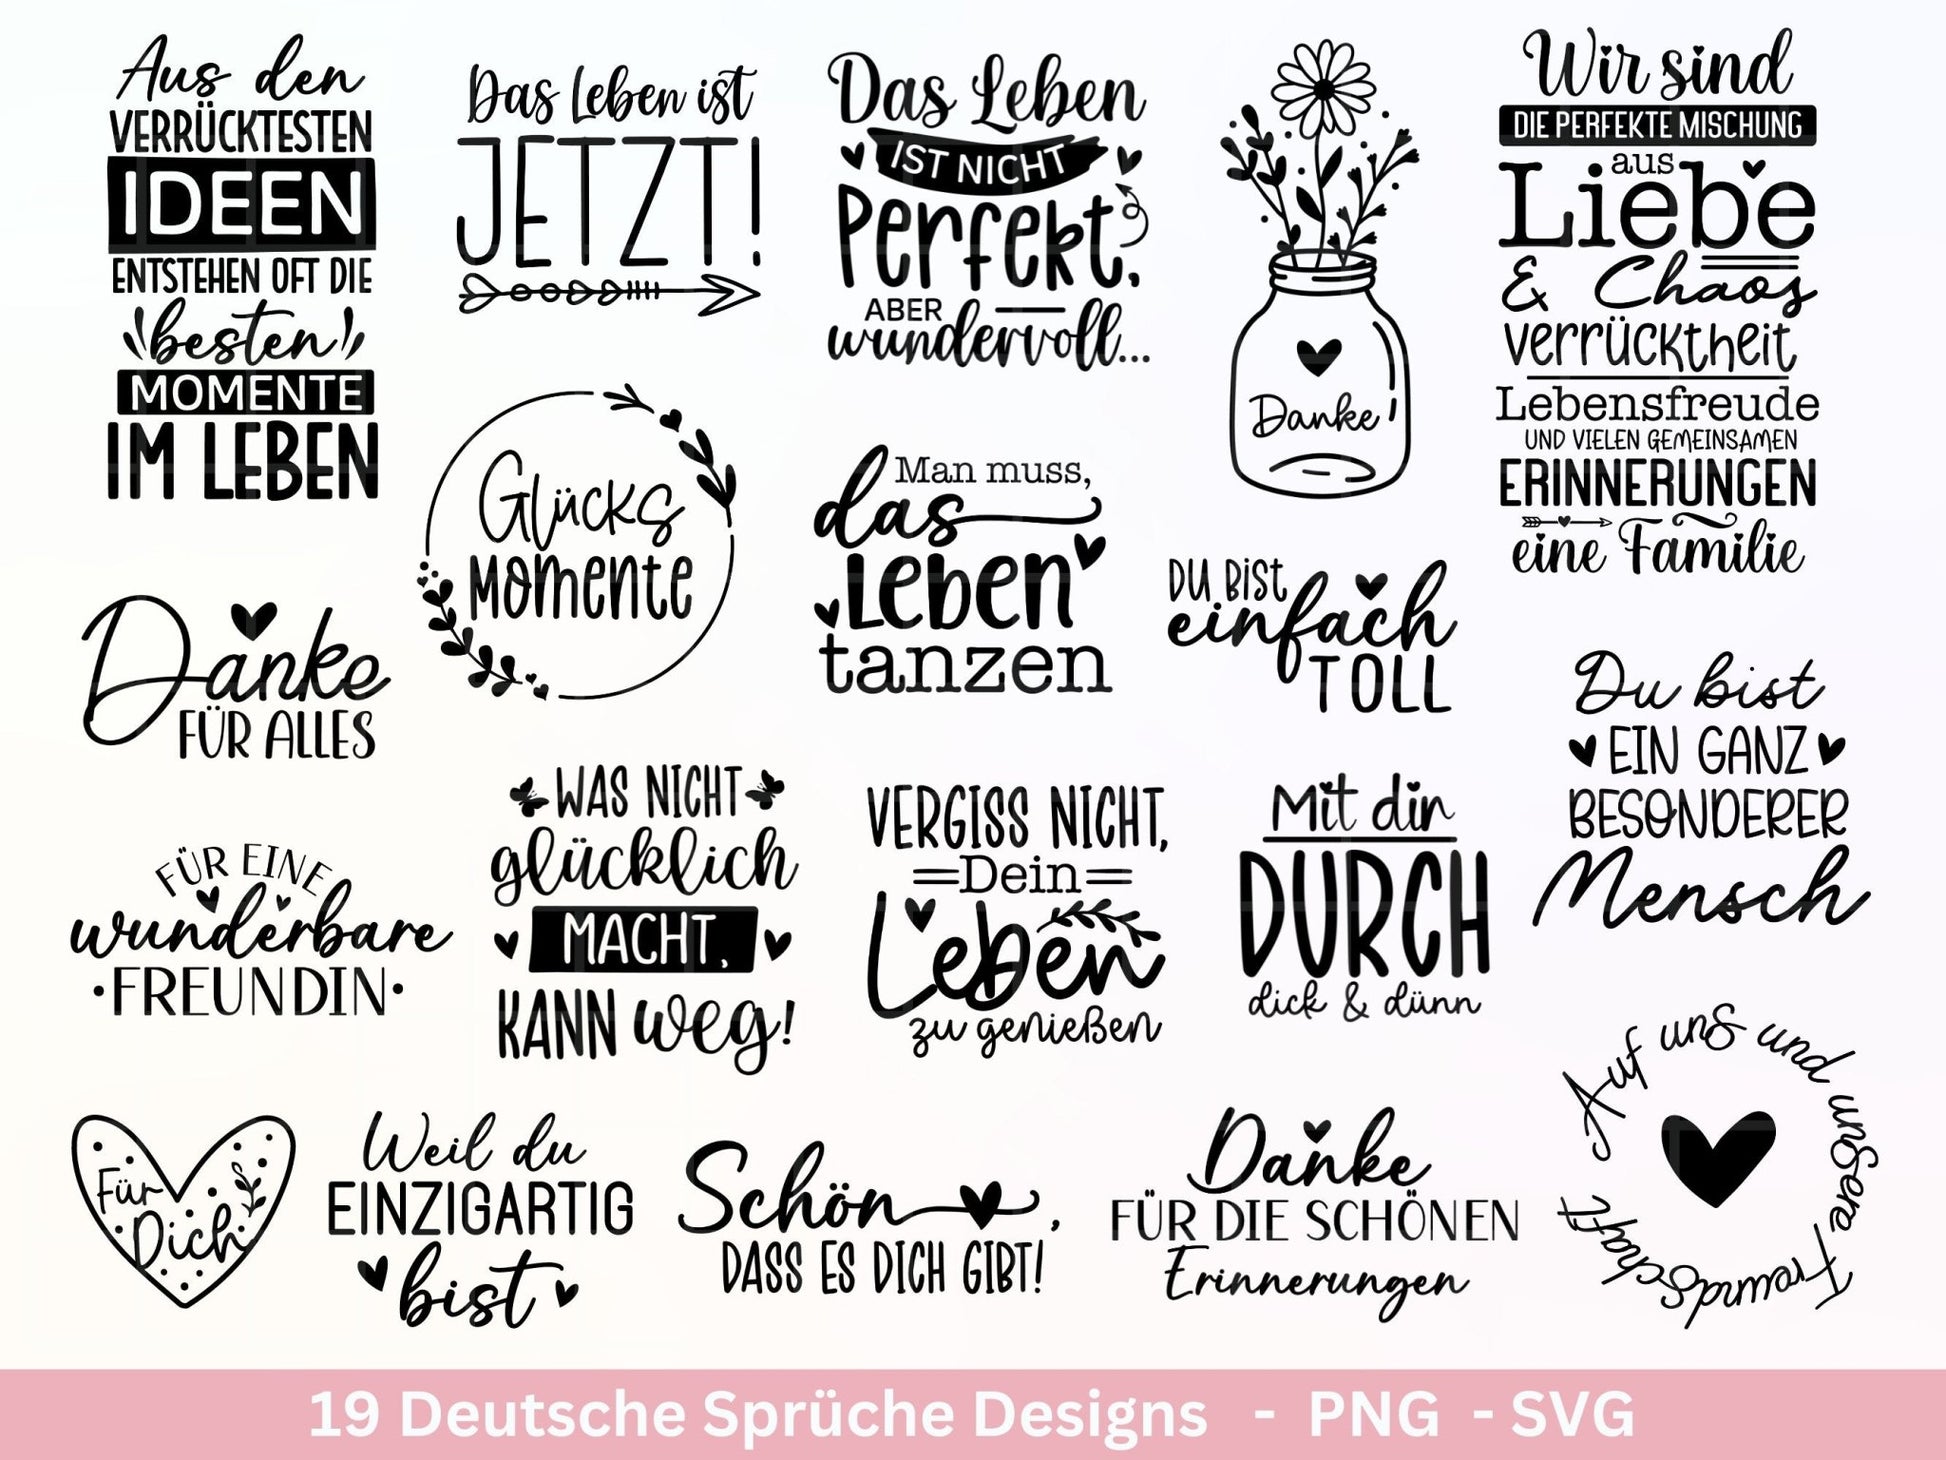 Aus den
VERRÜCKTESTEN
IDEEN
ENTSTEHEN OFT DIE
besten
MOMENTE
IM LEBEN
Das Leben ist
JETZT!
Das Leben
IST NICHT
Perfekt,
ABER
wundervoll...
Danke!
Wir sind
DIE PERFEKTE MISCHUNG
aus
Liebe
& Chaos
Verrücktheit
Lebensfreude
UND VIELEN GEMEINSAMEN
ERINNERUNGEN
eine Familie
Glücks
Momente
Man muss,
das
Leben
tanzen
DU BIST
einfach
TOLL
Danke
FÜR ALLES
Du bist
EIN GANZ
BESONDERER
Mensch
FÜR EINE
wunderbare
•FREUNDIN•
WAS NICHT
glücklich
MACHT,
KANN weg!
VERGISS NICHT,
=Dein=
Leben
zu genießen
Mit dir
DURCH
dick & dünn
Für
Dich
Weil du
EINZIGARTIG
bist
Schön,
DASS ES DICH GIBT!
Danke
FÜR DIE SCHÖNEN
Erinnerungen
Auf uns und unsere Freundschaft
19 Deutsche Sprüche Designs - PNG - SVG